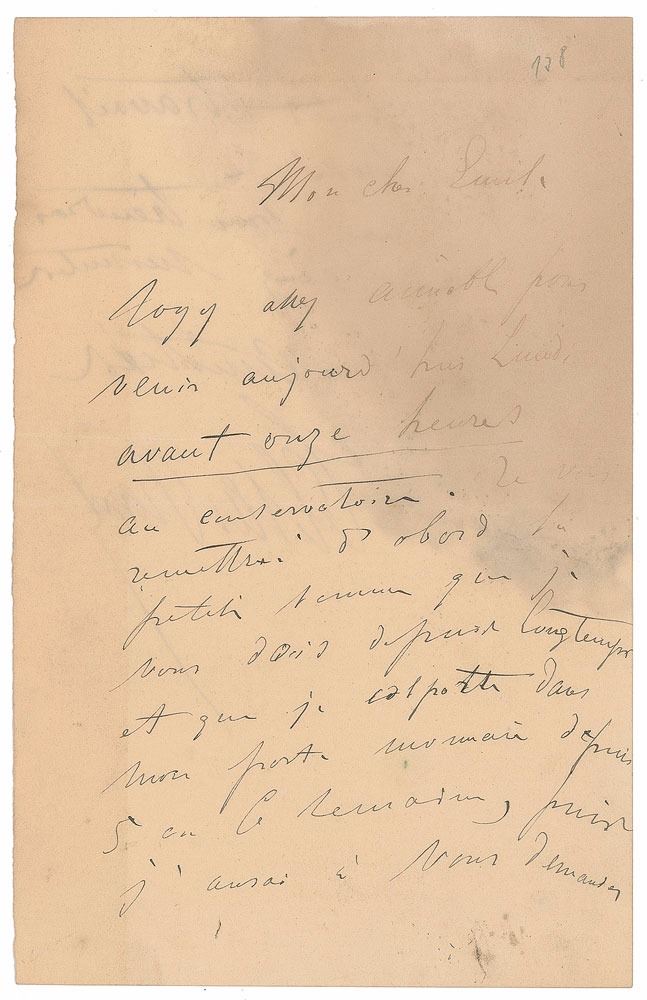 178
Mon cher
Soyez assez aimable pour
venir aujourd'hui Lundi
avant onze heures
au conservatoire. Je vous
remettrai d'abord la
petite somme que je
vous dois depuis longtemps
et que je colporte dans
mon porte monnaie depuis
5 ou 6 semaines, puis
j'aurai à vous demander